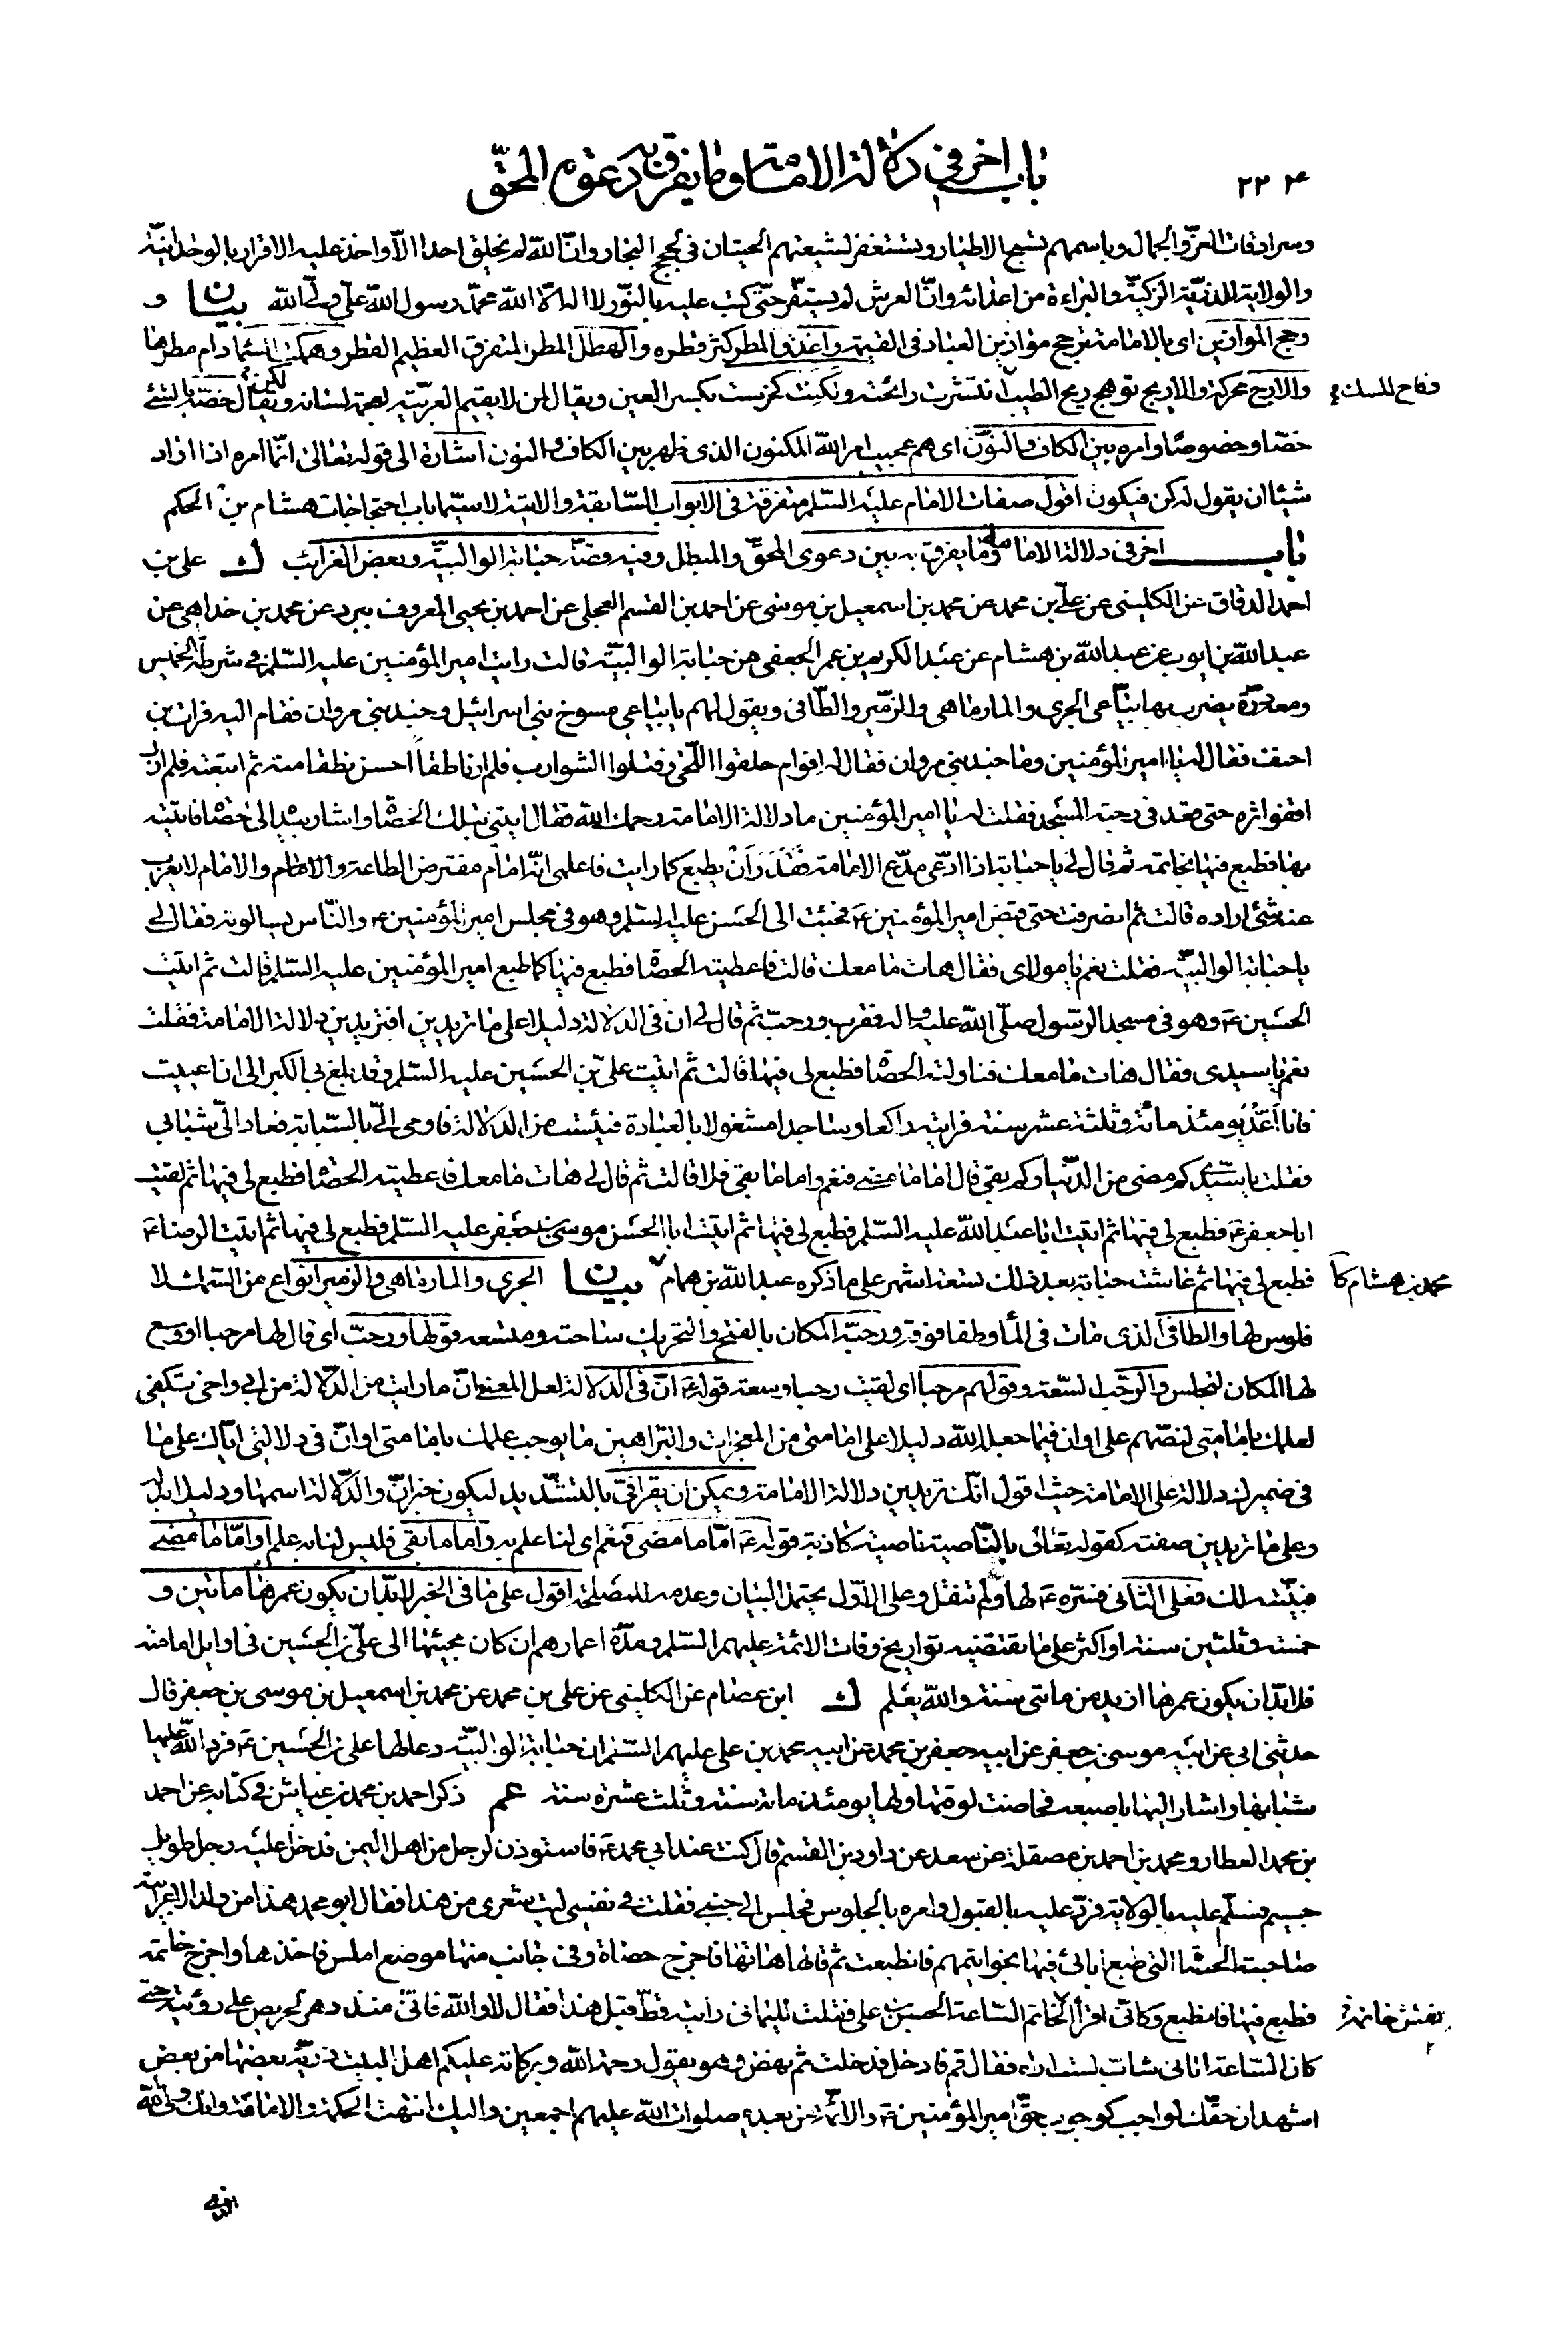 باب اخر في دلالة الامامة وما يفرق به دعوى المحق
٢٢٤
وسرادقات العز والجمال وباسمهم تسبح الاطيار ويستغفر لشيعتهم الحيتان في لجج البحار وان الله لم يخلق احدا الا واخذ عليه الاقرار بالوحدانية
والولاية للذرية الزكية والبراءة من اعدائهم وان العرش لم يستقر حتى كتب عليه بالنور لا اله الا الله محمد رسول الله علي ولي الله بيان و
رجح الموازين اى بالامامة ترجح موازين العباد في القيمة واغدق المطر كثر قطره والهطل المطر المتفرق العظيم القطر وهمكت السماء دام مطرها
والارج محركة والاريج توهج ريح الطيب انتشرت رائحته ولكنت كخرست بكسر العين ويقال لمن لا يقيم العربية لعجمة لسانه ويقال خصه بالشئ
وفاح المسك
خصا وخصوصا وامره بين الكاف والنون اى هم عجيب امر الله المكنون الذى ظهر بين الكاف والنون اشارة الى قوله تعالى انما امره اذا اراد
شيئا ان يقول له كن فيكون اقول صفات الامام عليه السلم متفرقة في الابواب السابقة والاتية لا سيما باب احتجاجات هشام بن الحكم
باب اخر في دلالة الامامة وما يفرق به بين دعوى المحق والمبطل وفيه قصة حبابة الوالبية وبعض الغرائب ك علي بن
احمد الدقاق عن الكليني عن علي بن محمد عن محمد بن اسمعيل بن موسى عن احمد بن القسم العجلى عن احمد بن يحيى المعروف ببرد عن محمد بن خداهى عن
عبد الله بن ايوب عن عبد الله بن هشام عن عبد الكريم بن عمر الجعفى عن حبابة الوالبية قالت رايت امير المؤمنين عليه السلم في شرطة الخميس
ومعه درة يضرب بها بياعى الجرى والمارماهى والزمير والطافى ويقول لهم يا بياعى مسوخ بنى اسرائيل وجند بنى مروان فقام اليه فرات بن
احنف فقال له يا امير المؤمنين وما جند بنى مروان فقال له اقوام حلقوا اللحى وفتلوا الشوارب فلم ار ناطقا احسن نطقا منه ثم اتبعته فلم ازل
اقفو اثره حتى قعد في رحبة المسجد فقلت له يا امير المؤمنين ما دلالة الامامة رحمك الله فقال ايتيني بتلك الحصاة واشار بيده الى حصاة فاتيته
بها فطبع فيها بخاتمه ثم قال لي يا حبابة اذا ادعى مدع الامامة فقدر ان يطبع كما رايت فاعلمى انه امام مفترض الطاعة والامام لا يعزب
عنه شئ اراده قالت ثم انصرفت حتى قبض امير المؤمنين ع فجئت الى الحسن عليه السلم وهو في مجلس امير المؤمنين ع والناس يسالونه فقال لي
يا حبابة الوالبية فقلت نعم يا مولاى فقال هات ما معك قالت فاعطيته الحصاة فطبع فيها كما طبع امير المؤمنين عليه السلم قالت ثم اتيت
الحسين ع وهو في مسجد الرسول صلى الله عليه واله فقرب ورحب ثم قال لي ان في الدلالة دليلا على ما تريدين افتريدين دلالة الامامة فقلت
نعم يا سيدى فقال هات ما معك فناولته الحصاة فطبع لي فيها قالت ثم اتيت علي بن الحسين عليه السلم وقد بلغ بي الكبر الى ان اعييت
فانا اعد يومئذ مائة وثلثة عشر سنة فرايته راكعا وساجدا مشغولا بالعبادة فيئست من الدلالة فاومى الي بالسبابة فعاد الي شبابي
فقلت يا سيدى كم مضى من الدنيا وكم بقى قال اما ما مضى فنعم واما ما بقى فلا قالت ثم قال لي هات ما معك فاعطيته الحصاة فطبع لي فيها ثم لقيت
ابا جعفر ع فطبع لي فيها ثم اتيت ابا عبد الله عليه السلم فطبع لي فيها ثم اتيت ابا الحسن موسى بن جعفر عليه السلم فطبع لي فيها ثم اتيت الرضا ع
فطبع لي فيها ثم عاشت حبابة بعد ذلك تسعة اشهر على ما ذكره عبد الله بن همام بيان الجرى والمارماهى والزمير انواع من السمك لا
محمد بن هشام كا
فلوس لها والطافى الذى مات في الماء وطفا فوقه ورحبة المكان بالفتح والتحريك ساحته ومتسعه قوله ورحب اى قال لها مرحبا او وسع
لها المكان لتجلس والرحب السعة وقولهم مرحبا اى لقيت رحبا وسعة قوله ع ان في الدلالة لعل المعنى ان ما رايت من الدلالة من ابي واخى تكفى
لعلمك بامامتى لنصهم علي او ان فيما جعل الله دليلا على امامتى من المعجزات والبراهين ما يوجب علمك بامامتى او ان في دلالتى اياك على ما
في ضميرك دلالة على الامامة حيث اقول انك تريدين دلالة الامامة ويمكن ان يقرا في بالتشديد ليكون خبر ان والدلالة اسمها ودليلا بدله
وعلى ما تريدين صفته كقوله تعالى بالناصية ناصية كاذبة قوله ع اما ما مضى فنعم اى لنا علم به واما ما بقى فليس لنا به علم او اما ما مضى
فبينته لك فعلى الثانى فسره ع لها ولم تنقل وعلى الاول يحتمل البيان وعدمه للمصلحة اقول على ما في الخبر لابد ان يكون عمرها مائتين و
خمسة وثلثين سنة او اكثر على ما يقتضيه تواريخ وفات الائمة عليهم السلم ومدة اعمارهم ان كان مجيئها الى علي بن الحسين في اوايل امامته
فلا بد ان يكون عمرها ازيد من مائتى سنة والله يعلم ك ابن عصام عن الكليني عن علي بن محمد عن محمد بن اسمعيل بن موسى بن جعفر قال
حدثنى ابي عن ابيه موسى بن جعفر عن ابيه جعفر بن محمد عن ابيه محمد بن علي عليهم السلم ان حبابة الوالبية دعا لها علي بن الحسين ع فرد الله عليها
شبابها واشار اليها باصبعه فحاضت لوقتها ولها يومئذ مائة سنة وثلث عشرة سنة عم ذكر احمد بن محمد بن عياش في كتابه عن احمد
بن محمد العطار ومحمد بن احمد بن مصقلة عن سعد عن داود بن القسم قال كنت عند ابي محمد ع فاستوذن لرجل من اهل اليمن فدخل عليه رجل طويل
جسيم فسلم عليه بالولاية فرد عليه بالقبول وامره بالجلوس فجلس الى جنبى فقلت في نفسى ليت شعرى من هذا فقال ابو محمد هذا من ولد الاعرابية
صاحبة الحصاة التى طبع ابائى فيها بخواتيمهم فانطبعت ثم قال هاتها فاخرج حصاة وفي جانب منها موضع املس فاخذها واخرج خاتمه
فطبع فيها فانطبع وكانى اقرا الخاتم الساعة الحسن بن علي فقلت لليمانى رايته قط قبل هذا فقال لا والله فانى منذ دهر لحريص على رؤيته حتى
نقش خاتمه
كان الساعة اتانى شاب لست اراه فقال قم فادخل فدخلت ثم نهض وهو يقول رحمة الله وبركاته عليكم اهل البيت ذرية بعضها من بعض
اشهد ان حقك لواجب كوجوب حق امير المؤمنين ع والائمة من بعده صلوات الله عليهم اجمعين واليك انتهت الحكمة والامامة وانك ولي الله